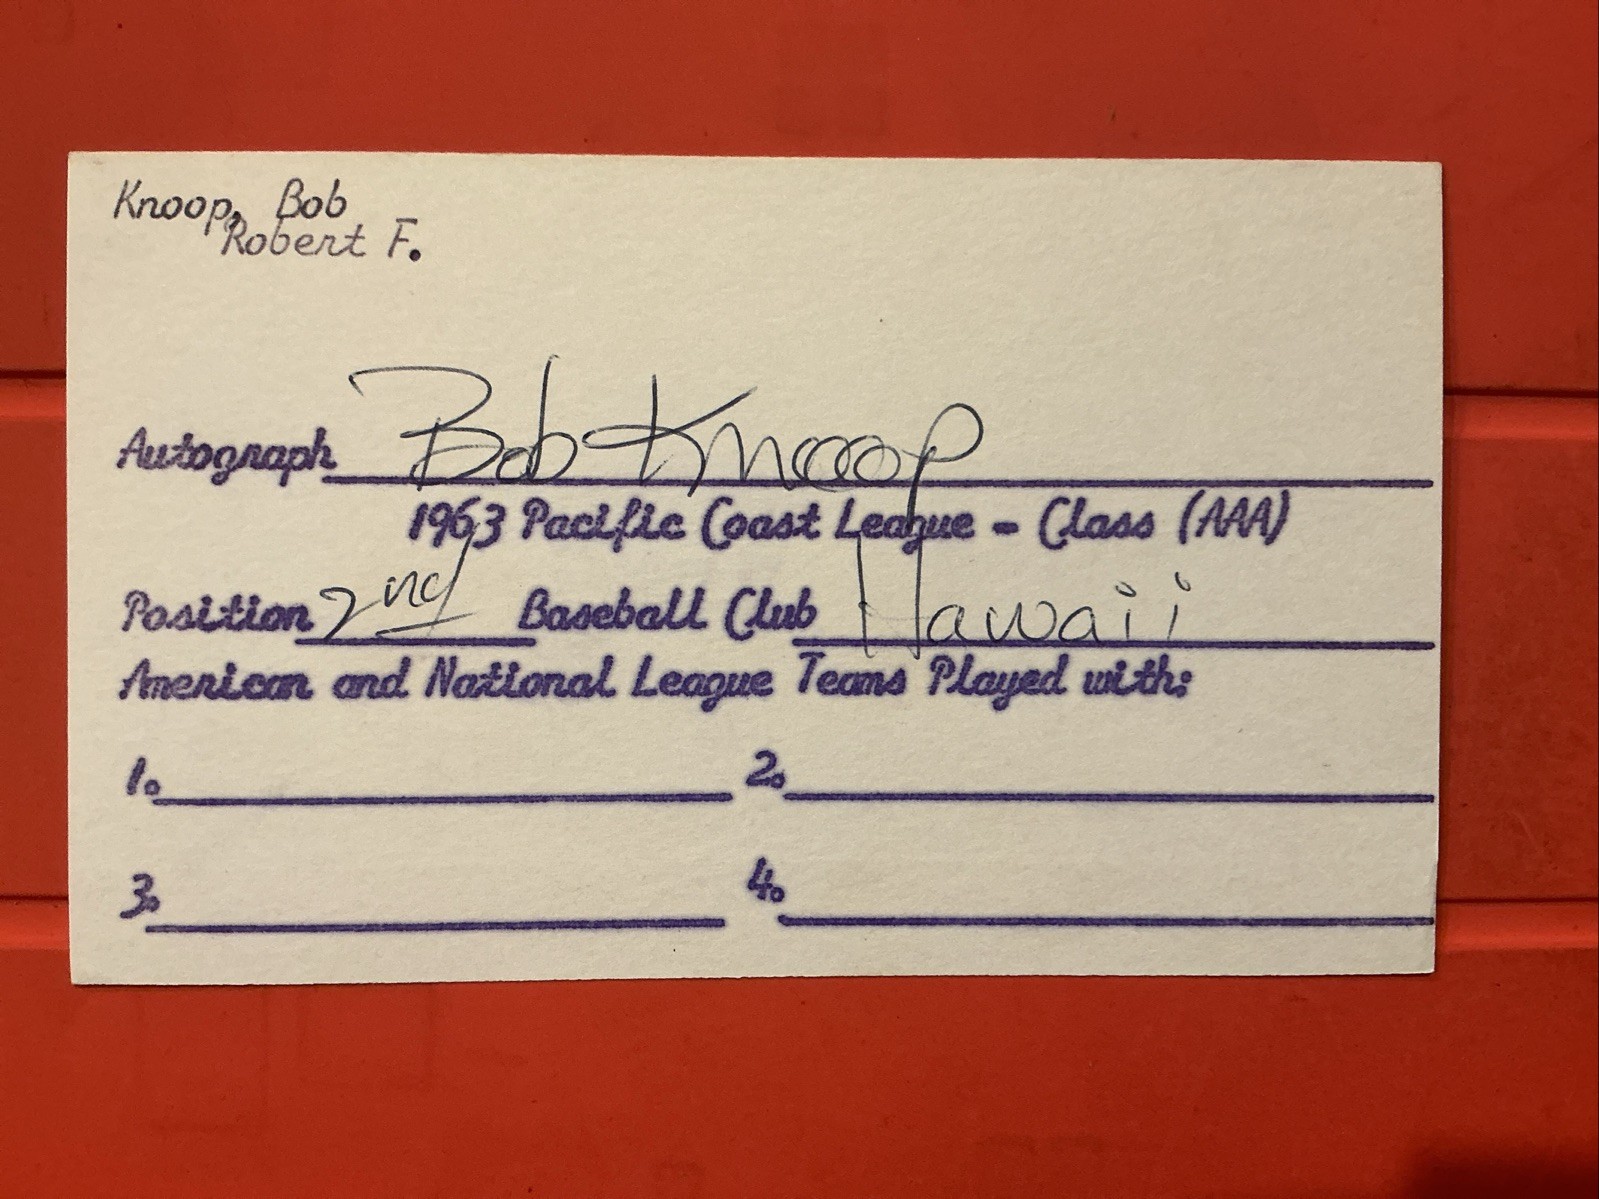 Knoop, Bob
Robert F.
Autograph Bob Knoop
1963 Pacific Coast League - Class (AAA)
Position 2nd Baseball Club Hawaii
American and National League Teams Played with:
1. 2.
3. 4.